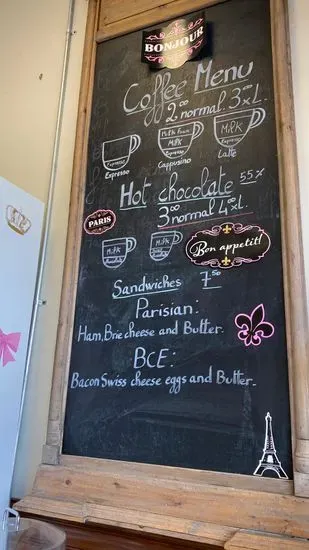 BONJOUR
Coffee Menu
2.00 normal. 3.00 XL.
Espresso
Milk Foam
Milk
Espresso
Milk
Espresso
Espresso
Cappusino
Latte
Hot chocolate 55%
3.00 normal 4.00 XL.
PARIS
Milk
Milk
Bon appetit!
Sandwiches 7.50
Parisian:
Ham, Brie cheese and Butter.
BCE:
Bacon Swiss cheese eggs and Butter.